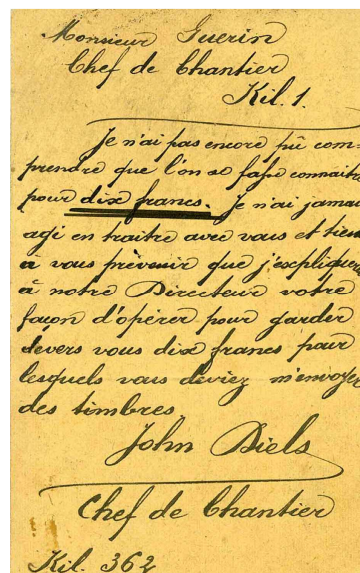 Monsieur Guerin
Chef de Chantier
Kil. 1.
Je n'ai pas encore pû com-
prendre que l'on se fasse connaitre
pour dix francs. Je n'ai jamais
agi en traitre avec vous et tiens
à vous prévenir que j'expliquerai
à notre Directeur votre
façon d'opérer pour garder
devers vous dix francs pour
lesquels vous deviez m'envoyer
des timbres
John Biels
Chef de Chantier
Kil. 362